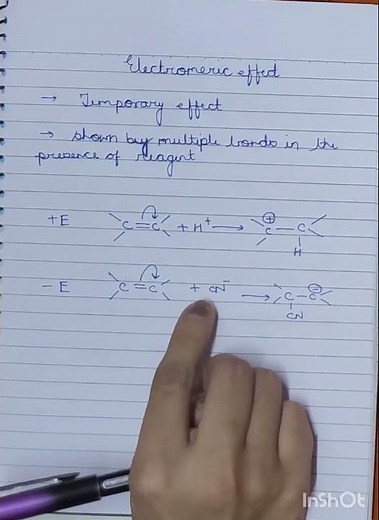 Electromeric effect
→ Temporary effect
→ Shown by multiple bonds in the
presence of reagent
+E C=C + H⁺ → C⊕ – C
H
−E C=C + CN⁻ → C – C⊖
CN
InShOt